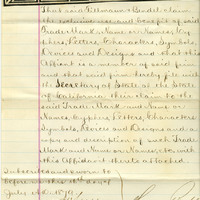 That said Tillmann & Bendel claim
the exclusive use and benefit of said
Trade Mark and Name or Names, Cy
phers, Letters, Characters, Symbols,
Devices and Designs and that this
Affiant is a member of said firm
and that said firm hereby file with
the Secretary of State of the State
of California their claim to the
said Trade Mark and Name or
Names, Cyphers, Letters, Characters
Symbols, Devices and Designs and a
copy and description of such Trade
Mark and Name or Names, &c, with
this Affidavit thereto attached.
Subscribed and sworn to
before me this day of